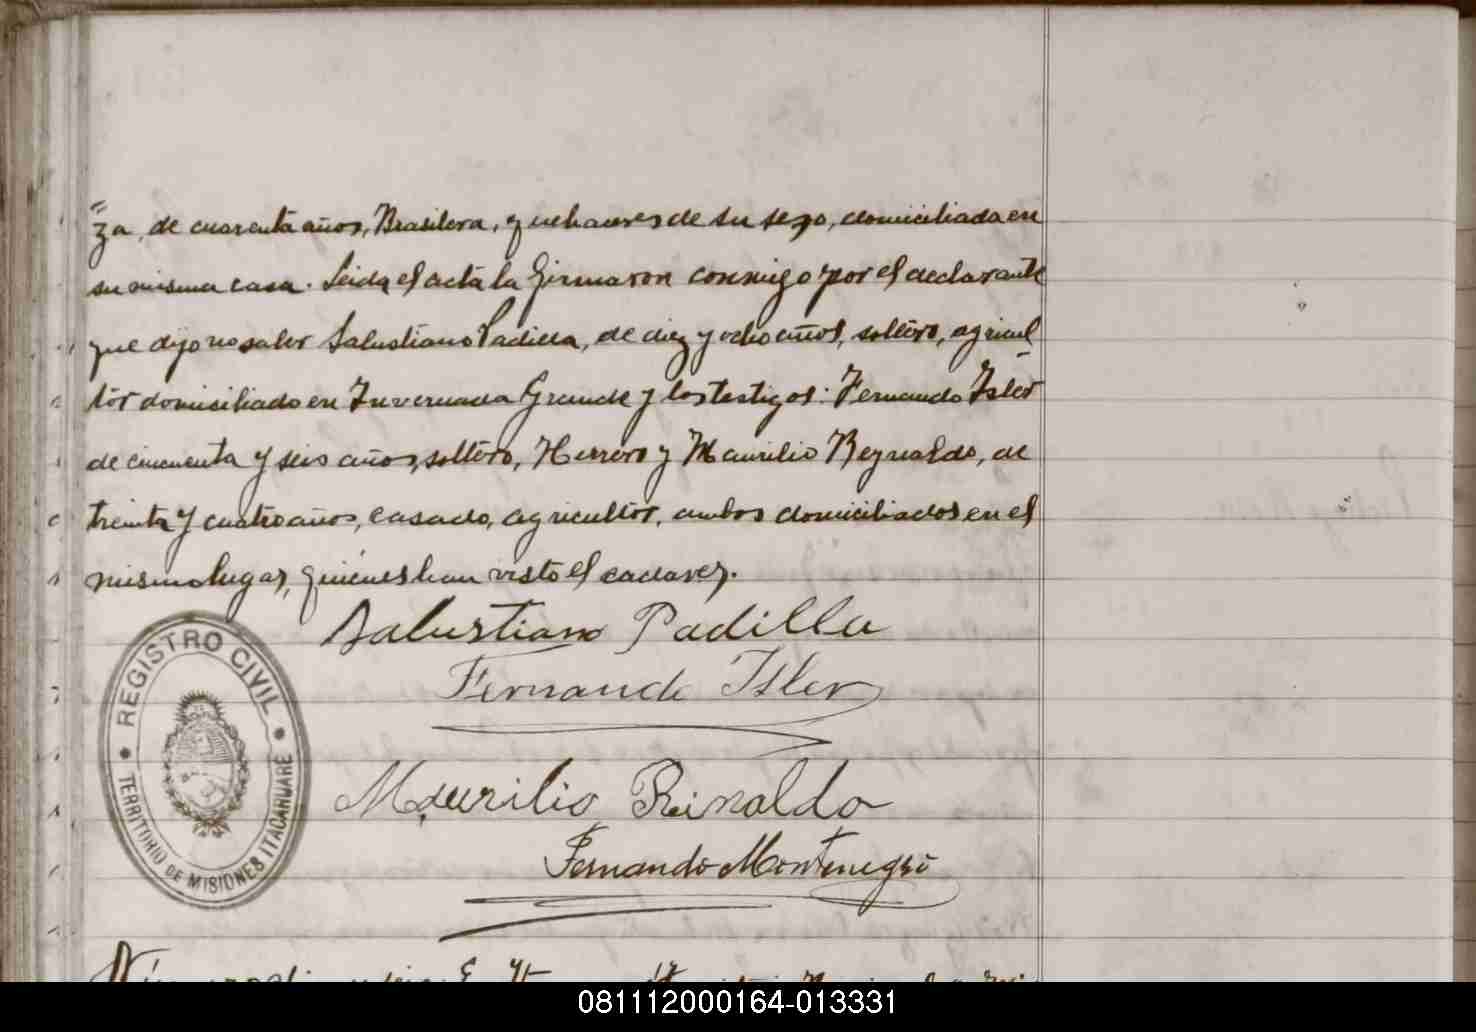 za, de cuarenta años, Brasilera, quehaceres de su sexo, domiciliada en
su misma casa. Leida el acta la firmaron conmigo por el declarante
que dijo no saber Salustiano Padilla, de diez y ocho años, soltero, agricul
tor domiciliado en Invernada Grande y los testigos: Fernando Isler
de cincuenta y seis años, soltero, Herrero y Maurilio Reynaldo, de
treinta y cuatro años, casado, agricultor, ambos domiciliados en el
mismo lugar, quienes han visto el cadaver.
Salustiano Padilla
Fernando Isler
Maurilio Rinaldo
Fernando Montenegro
REGISTRO CIVIL
TERRITORIO DE MISIONES ITACARUARE
081112000164-013331